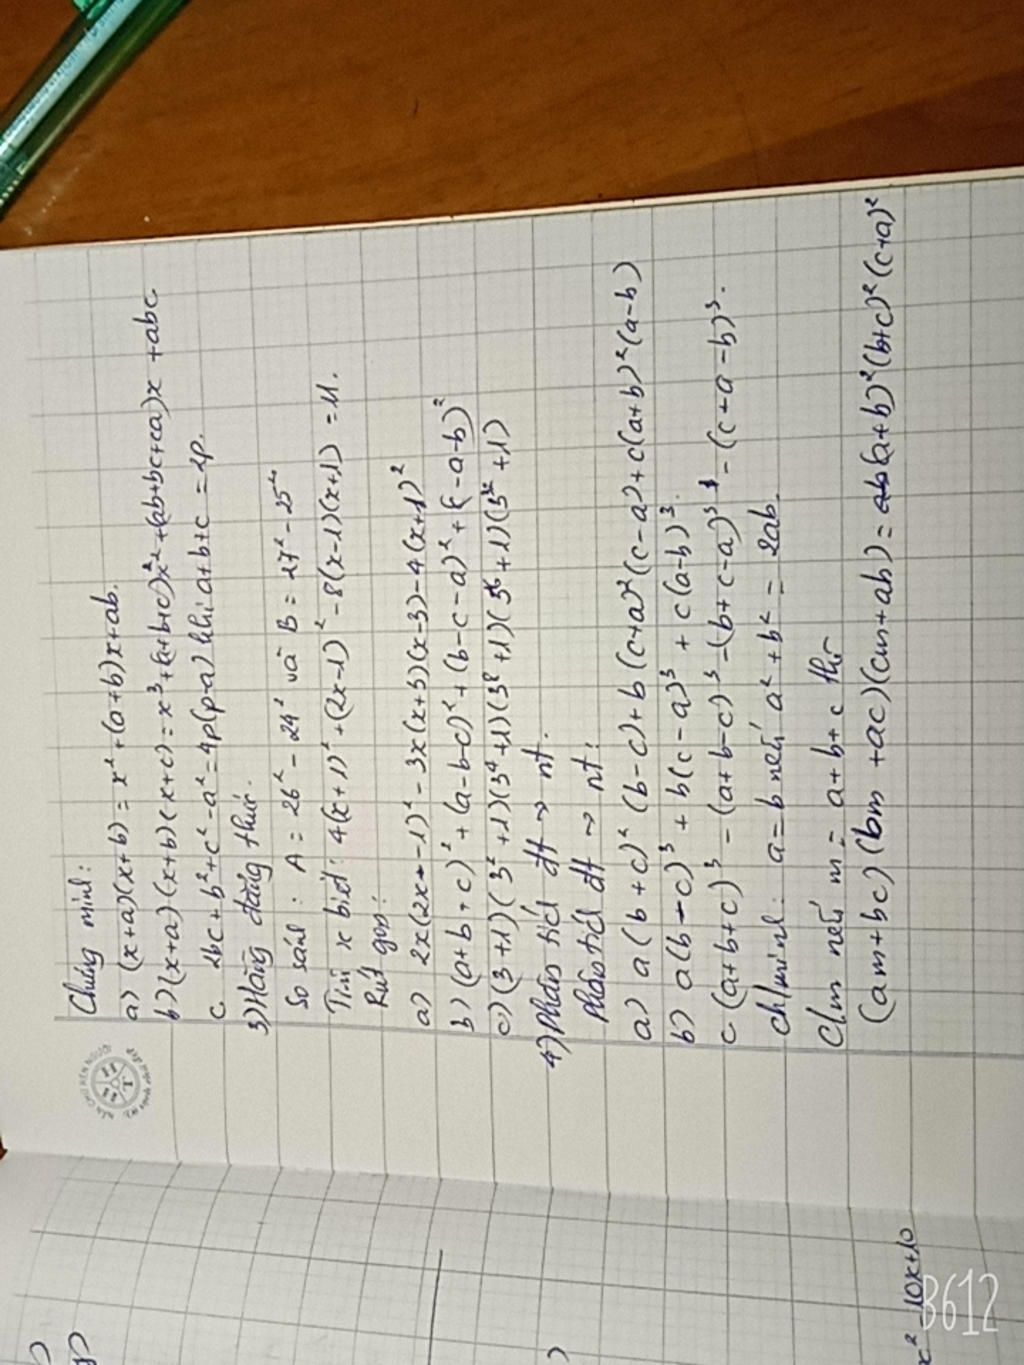 Chứng minh:
a) (x+a)(x+b) = x² + (a+b)x + ab.
b) (x+a)(x+b)(x+c) = x³ + (a+b+c)x² + (ab+bc+ca)x + abc
c. 2bc + b² + c² - a² = 4p(p-a) khi a+b+c = 2p.
3) Hằng đẳng thức.
So sánh: A = 26² - 24² và B = 27² - 25²
Tìm x biết: 4(x+1)² + (2x-1)² - 8(x-1)(x+1) = 11.
Rút gọn:
a) 2x(2x-1)² - 3x(x+3)(x-3) - 4(x+1)²
b) (a+b+c)² + (a-b-c)² + (b-c-a)² + (c-a-b)²
c) (3+1)(3²+1)(3⁴+1)(3⁸+1)(3¹⁶+1)(3³²+1)
4) Phân tích đt → nt.
Phân tích đt → nt:
a) a(b+c)²(b-c) + b(c+a)²(c-a) + c(a+b)²(a-b)
b) a(b-c)³ + b(c-a)³ + c(a-b)³.
c (a+b+c)³ - (a+b-c)³ - (b+c-a)³ - (c+a-b)³.
Chứminh: a=b nếu a² + b² = 2ab.
C/m nếu m = a+b+c thì
(am+bc)(bm+ac)(cm+ab) = (a+b)²(b+c)²(c+a)²
x² - 10x + 10
B612